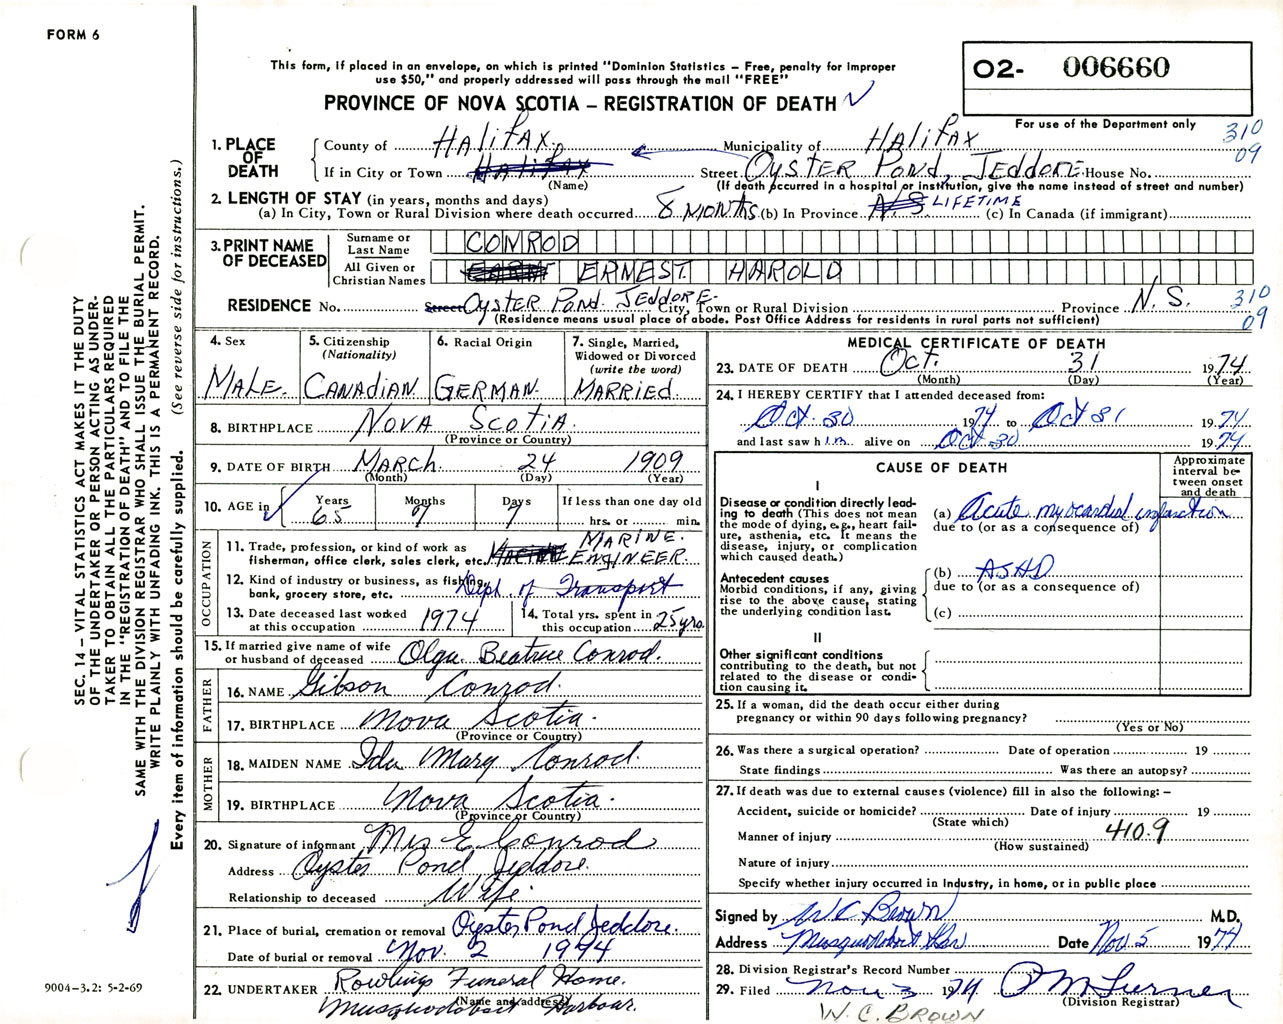 FORM 6
This form, if placed in an envelope, on which is printed "Dominion Statistics – Free, penalty for improper
use $50," and properly addressed will pass through the mail "FREE"
PROVINCE OF NOVA SCOTIA – REGISTRATION OF DEATH
02- 006660
For use of the Department only
310
09
1. PLACE OF DEATH
County of Halifax Municipality of Halifax
If in City or Town Halifax Street Oyster Pond, Jeddore House No.
(Name) (If death occurred in a hospital or institution, give the name instead of street and number)
2. LENGTH OF STAY (in years, months and days)
(a) In City, Town or Rural Division where death occurred 8 MONTHS (b) In Province N.S. LIFETIME (c) In Canada (if immigrant)
3. PRINT NAME OF DECEASED
Surname or Last Name CONROD
All Given or Christian Names ERNEST HAROLD
RESIDENCE No. Street Oyster Pond Jeddore City, Town or Rural Division Province N.S.
(Residence means usual place of abode. Post Office Address for residents in rural parts not sufficient)
310
09
4. Sex
MALE.
5. Citizenship
(Nationality)
CANADIAN
6. Racial Origin
GERMAN
7. Single, Married,
Widowed or Divorced
(write the word)
MARRIED
8. BIRTHPLACE NOVA SCOTIA
(Province or Country)
9. DATE OF BIRTH MARCH 24 1909
(Month) (Day) (Year)
10. AGE in Years 65 Months 7 Days 7 If less than one day old
hrs. or min.
OCCUPATION
11. Trade, profession, or kind of work as
fisherman, office clerk, sales clerk, etc. MARINE ENGINEER
12. Kind of industry or business, as fishing,
bank, grocery store, etc. Dept. of Transport
13. Date deceased last worked
at this occupation 1974
14. Total yrs. spent in
this occupation 25 yrs.
15. If married give name of wife
or husband of deceased Olga Beatrice Conrod.
FATHER
16. NAME Gibson Conrod.
17. BIRTHPLACE Nova Scotia.
(Province or Country)
MOTHER
18. MAIDEN NAME Ida Mary Conrod.
19. BIRTHPLACE Nova Scotia.
(Province or Country)
20. Signature of informant Mrs E. Conrod
Address Oyster Pond Jeddore.
Relationship to deceased Wife.
21. Place of burial, cremation or removal Oyster Pond Jeddore.
Date of burial or removal Nov. 2 1974
22. UNDERTAKER Rowlings Funeral Home.
(Name and address)
Musquodoboit Harbour.
MEDICAL CERTIFICATE OF DEATH
23. DATE OF DEATH Oct. 31 1974
(Month) (Day) (Year)
24. I HEREBY CERTIFY that I attended deceased from:
Oct 30 1974 to Oct 31 1974
and last saw him alive on Oct 30 1974
CAUSE OF DEATH
Approximate
interval be-
tween onset
and death
I
Disease or condition directly lead-
ing to death (This does not mean
the mode of dying, e.g., heart fail-
ure, asthenia, etc. It means the
disease, injury, or complication
which caused death.)
(a) Acute myocardial infarction
due to (or as a consequence of)
Antecedent causes
Morbid conditions, if any, giving
rise to the above cause, stating
the underlying condition last.
(b) ASHD
due to (or as a consequence of)
(c)
II
Other significant conditions
contributing to the death, but not
related to the disease or condi-
tion causing it.
25. If a woman, did the death occur either during
pregnancy or within 90 days following pregnancy?
(Yes or No)
26. Was there a surgical operation? Date of operation 19
State findings Was there an autopsy?
27. If death was due to external causes (violence) fill in also the following: –
Accident, suicide or homicide? Date of injury 19
(State which)
Manner of injury 410.9
(How sustained)
Nature of injury
Specify whether injury occurred in industry, in home, or in public place
Signed by W C Brown M.D.
Address Musquodoboit Har Date Nov 5 1974
28. Division Registrar's Record Number
29. Filed Nov 3 1974
(Division Registrar)
W.C. BROWN
SEC. 14 – VITAL STATISTICS ACT MAKES IT THE DUTY
OF THE UNDERTAKER OR PERSON ACTING AS UNDER-
TAKER TO OBTAIN ALL THE PARTICULARS REQUIRED
IN THE "REGISTRATION OF DEATH" AND TO FILE THE
SAME WITH THE DIVISION REGISTRAR WHO SHALL ISSUE THE BURIAL PERMIT.
WRITE PLAINLY WITH UNFADING INK. THIS IS A PERMANENT RECORD.
Every item of information should be carefully supplied. (See reverse side for instructions.)
9004-3.2: 5-2-69